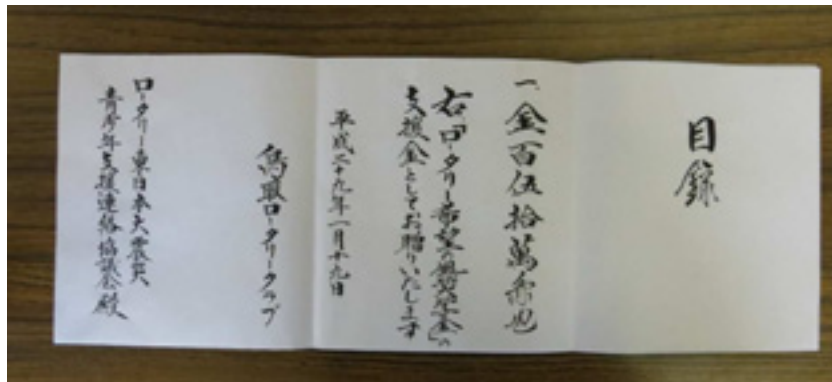 目録
一、金百伍拾萬円也
右「ロータリー希望の風奨学金」の
支援金としてお贈りいたします
平成二十九年一月十九日
鳥取ロータリークラブ
ロータリー東日本大震災
青少年支援連絡協議会殿